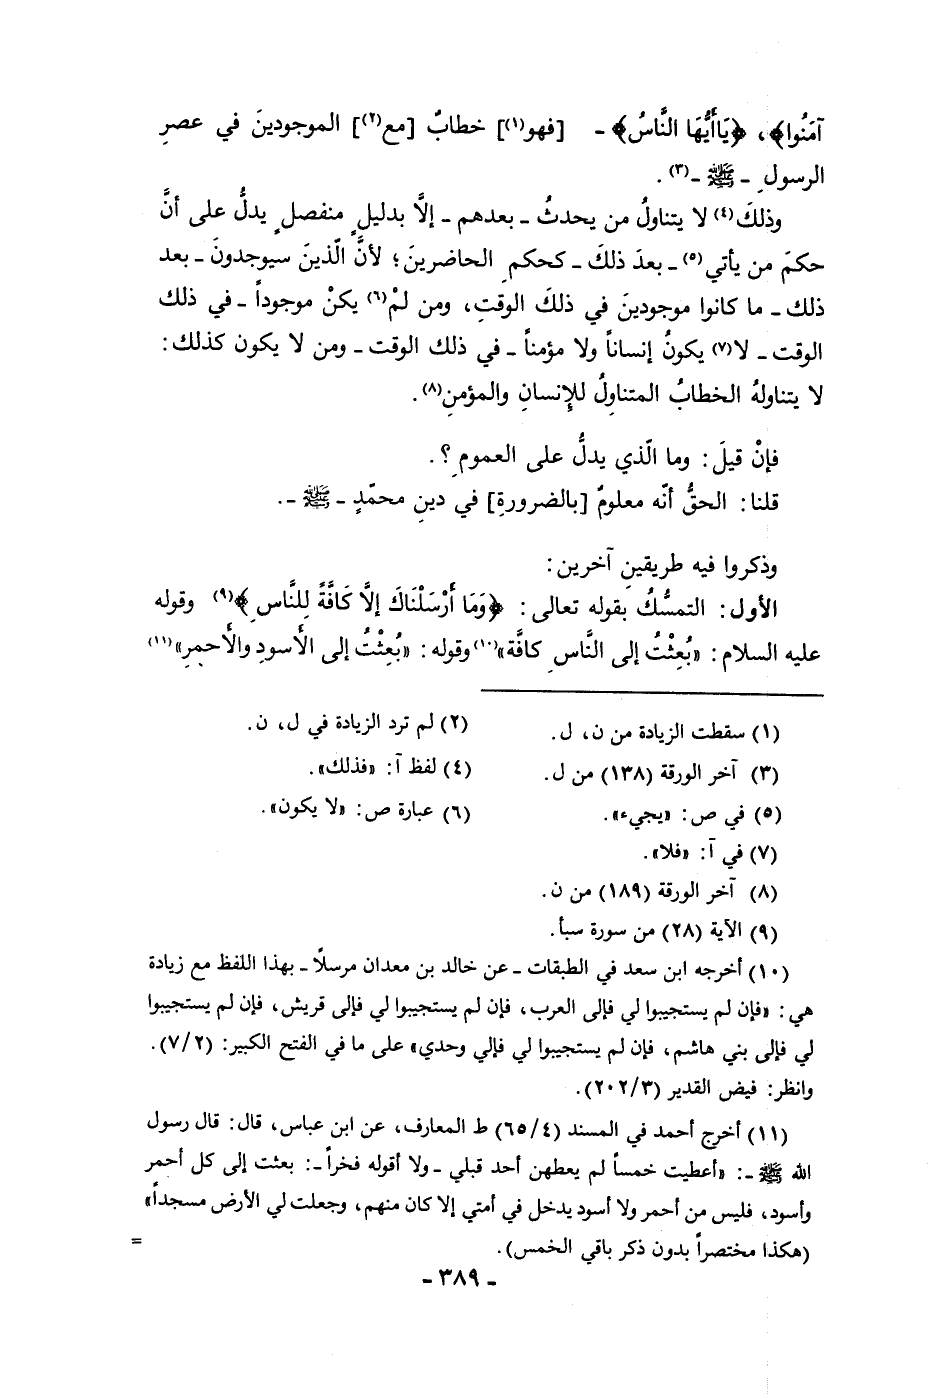 آمَنُوا﴾، ﴿يَاأَيُّهَا النَّاسُ﴾ - [فهو(١)] خطابٌ [مع(٢)] الموجودينَ في عصرِ
الرسولِ - ﷺ -(٣).
وذلكَ(٤) لا يتناولُ من يحدثُ - بعدهم - إلَّا بدليلٍ منفصلٍ يدلُّ على أنَّ
حكمَ من يأتي(٥) - بعدَ ذلكَ - كحكمِ الحاضرينَ؛ لأنَّ الّذينَ سيوجدونَ - بعد
ذلك - ما كانوا موجودينَ في ذلكَ الوقتِ، ومن لمْ(٦) يكنْ موجوداً - في ذلك
الوقت - لا(٧) يكونُ إنساناً ولا مؤمناً - في ذلك الوقت - ومن لا يكون كذلك:
لا يتناولهُ الخطابُ المتناولُ للإِنسانِ والمؤمنِ(٨).
فإنْ قيلَ: وما الّذي يدلُّ على العمومِ؟.
قلنا: الحقُّ أنّه معلومٌ [بالضرورةِ] في دينِ محمّدٍ - ﷺ -.
وذكروا فيه طريقينِ آخرين:
الأول: التمسُّكُ بقوله تعالى: ﴿وَمَا أَرْسَلْنَاكَ إلَّا كَافَّةً لِلنَّاسِ﴾(٩) وقوله
عليه السلام: «بُعِثْتُ إلى النَّاسِ كافَّة»(١٠) وقوله: «بُعِثْتُ إلى الأَسودِ والأَحمرِ»(١١)
(١) سقطت الزيادة من ن، ل. (٢) لم ترد الزيادة في ل، ن.
(٣) آخر الورقة (١٣٨) من ل. (٤) لفظ آ: «فذلك».
(٥) في ص: «يجيء». (٦) عبارة ص: «لا يكون».
(٧) في آ: «فلا».
(٨) آخر الورقة (١٨٩) من ن.
(٩) الآية (٢٨) من سورة سبأ.
(١٠) أخرجه ابن سعد في الطبقات - عن خالد بن معدان مرسلاً - بهذا اللفظ مع زيادة
هي: «فإن لم يستجيبوا لي فإلى العرب، فإن لم يستجيبوا لي فإلى قريش، فإن لم يستجيبوا
لي فإلى بني هاشم، فإن لم يستجيبوا لي فإلي وحدي» على ما في الفتح الكبير: (٧/٢).
وانظر: فيض القدير (٢٠٢/٣).
(١١) أخرج أحمد في المسند (٦٥/٤) ط المعارف، عن ابن عباس، قال: قال رسول
الله ﷺ -: «أعطيت خمساً لم يعطهن أحد قبلي - ولا أقوله فخراً -: بعثت إلى كل أحمر
وأسود، فليس من أحمر ولا أسود يدخل في أمتي إلا كان منهم، وجعلت لي الأرض مسجداً»
(هكذا مختصراً بدون ذكر باقي الخمس). =
- ٣٨٩ -